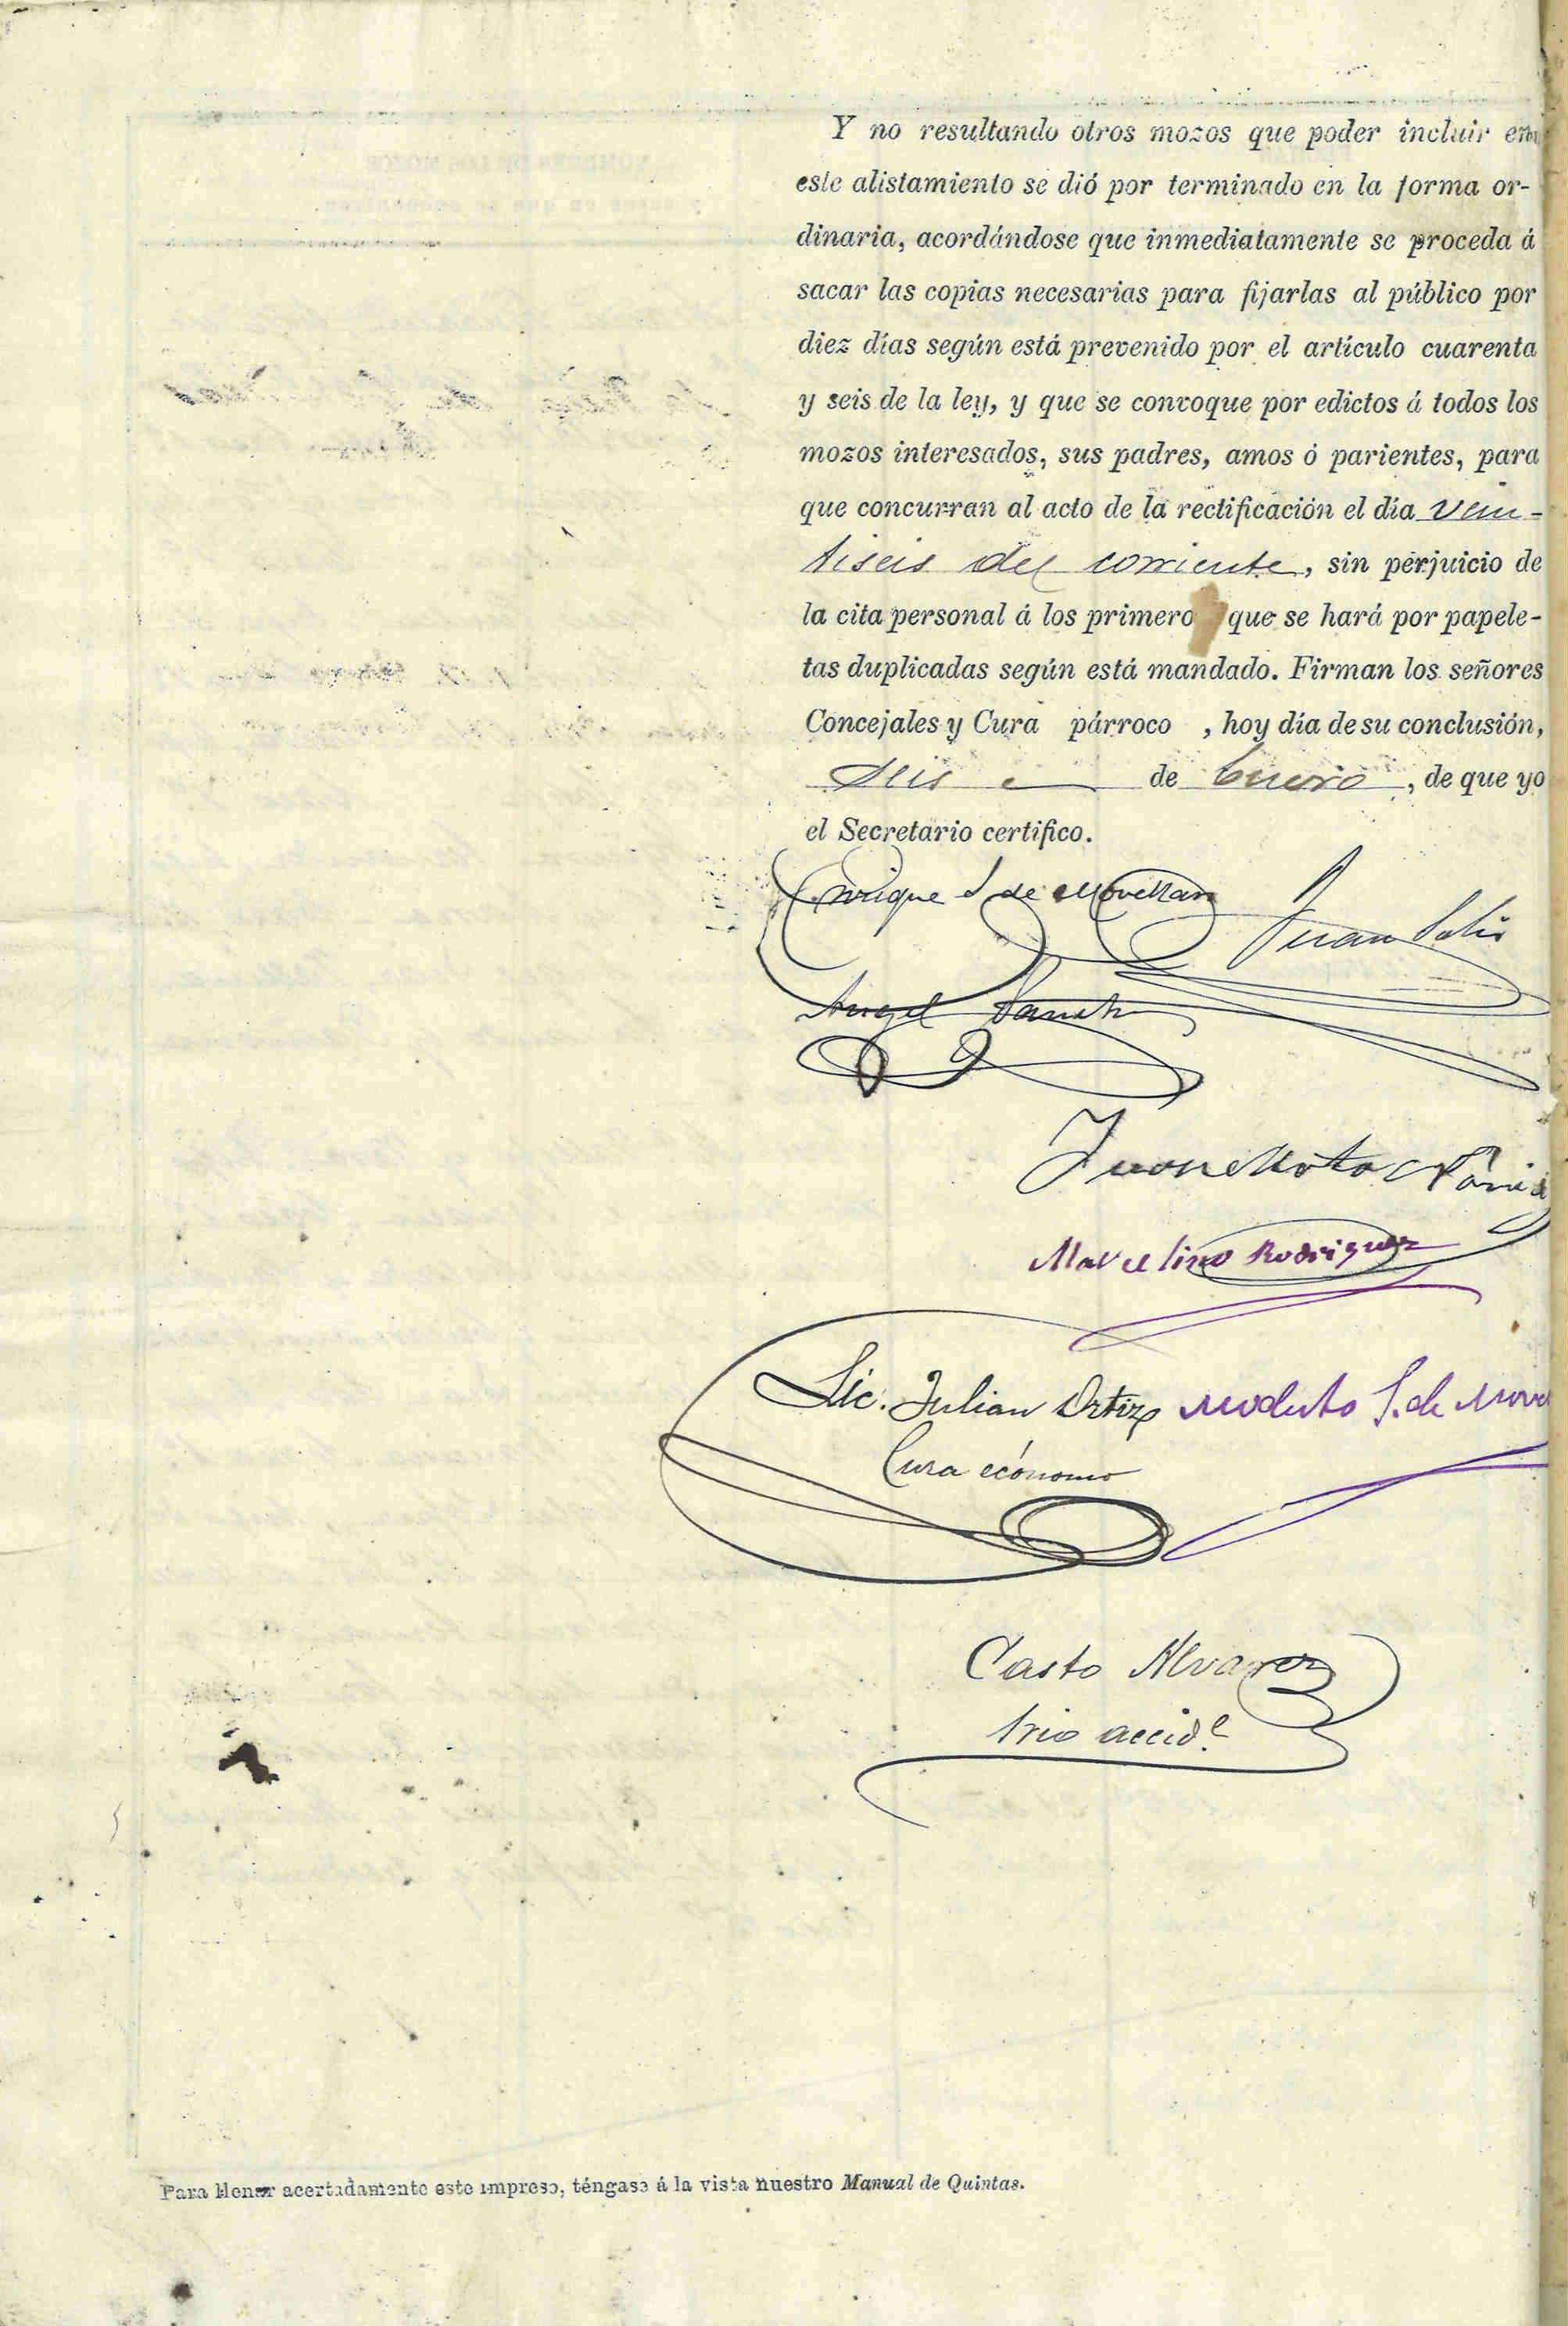 Y no resultando otros mozos que poder incluir en
este alistamiento se dió por terminado en la forma or-
dinaria, acordándose que inmediatamente se proceda á
sacar las copias necesarias para fijarlas al público por
diez días según está prevenido por el artículo cuarenta
y seis de la ley, y que se convoque por edictos á todos los
mozos interesados, sus padres, amos ó parientes, para
que concurran al acto de la rectificación el día vein-
tiseis del corriente, sin perjuicio de
la cita personal á los primero que se hará por papele-
tas duplicadas según está mandado. Firman los señores
Concejales y Cura párroco , hoy día de su conclusión,
seis de Enero, de que yo
el Secretario certifico.
Enrique S de Movellan
Juan Solis
Angel
Juan Mota
Marcelino Rodriguez
Lic. Julian Ortiz Modesto S. de Move
Cura ecónomo
Casto Alvarez
Srio accid.l
Para llenar acertadamente este impreso, téngase á la vista nuestro Manual de Quintas.